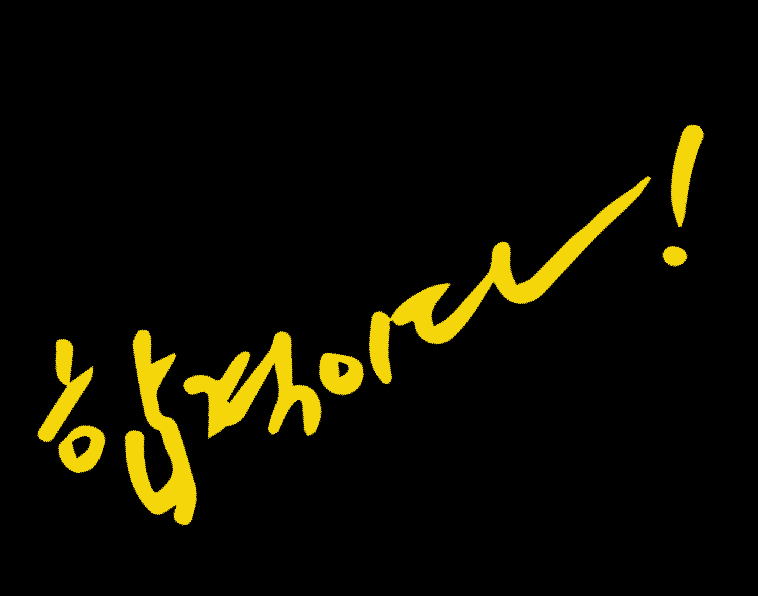 합격이다!